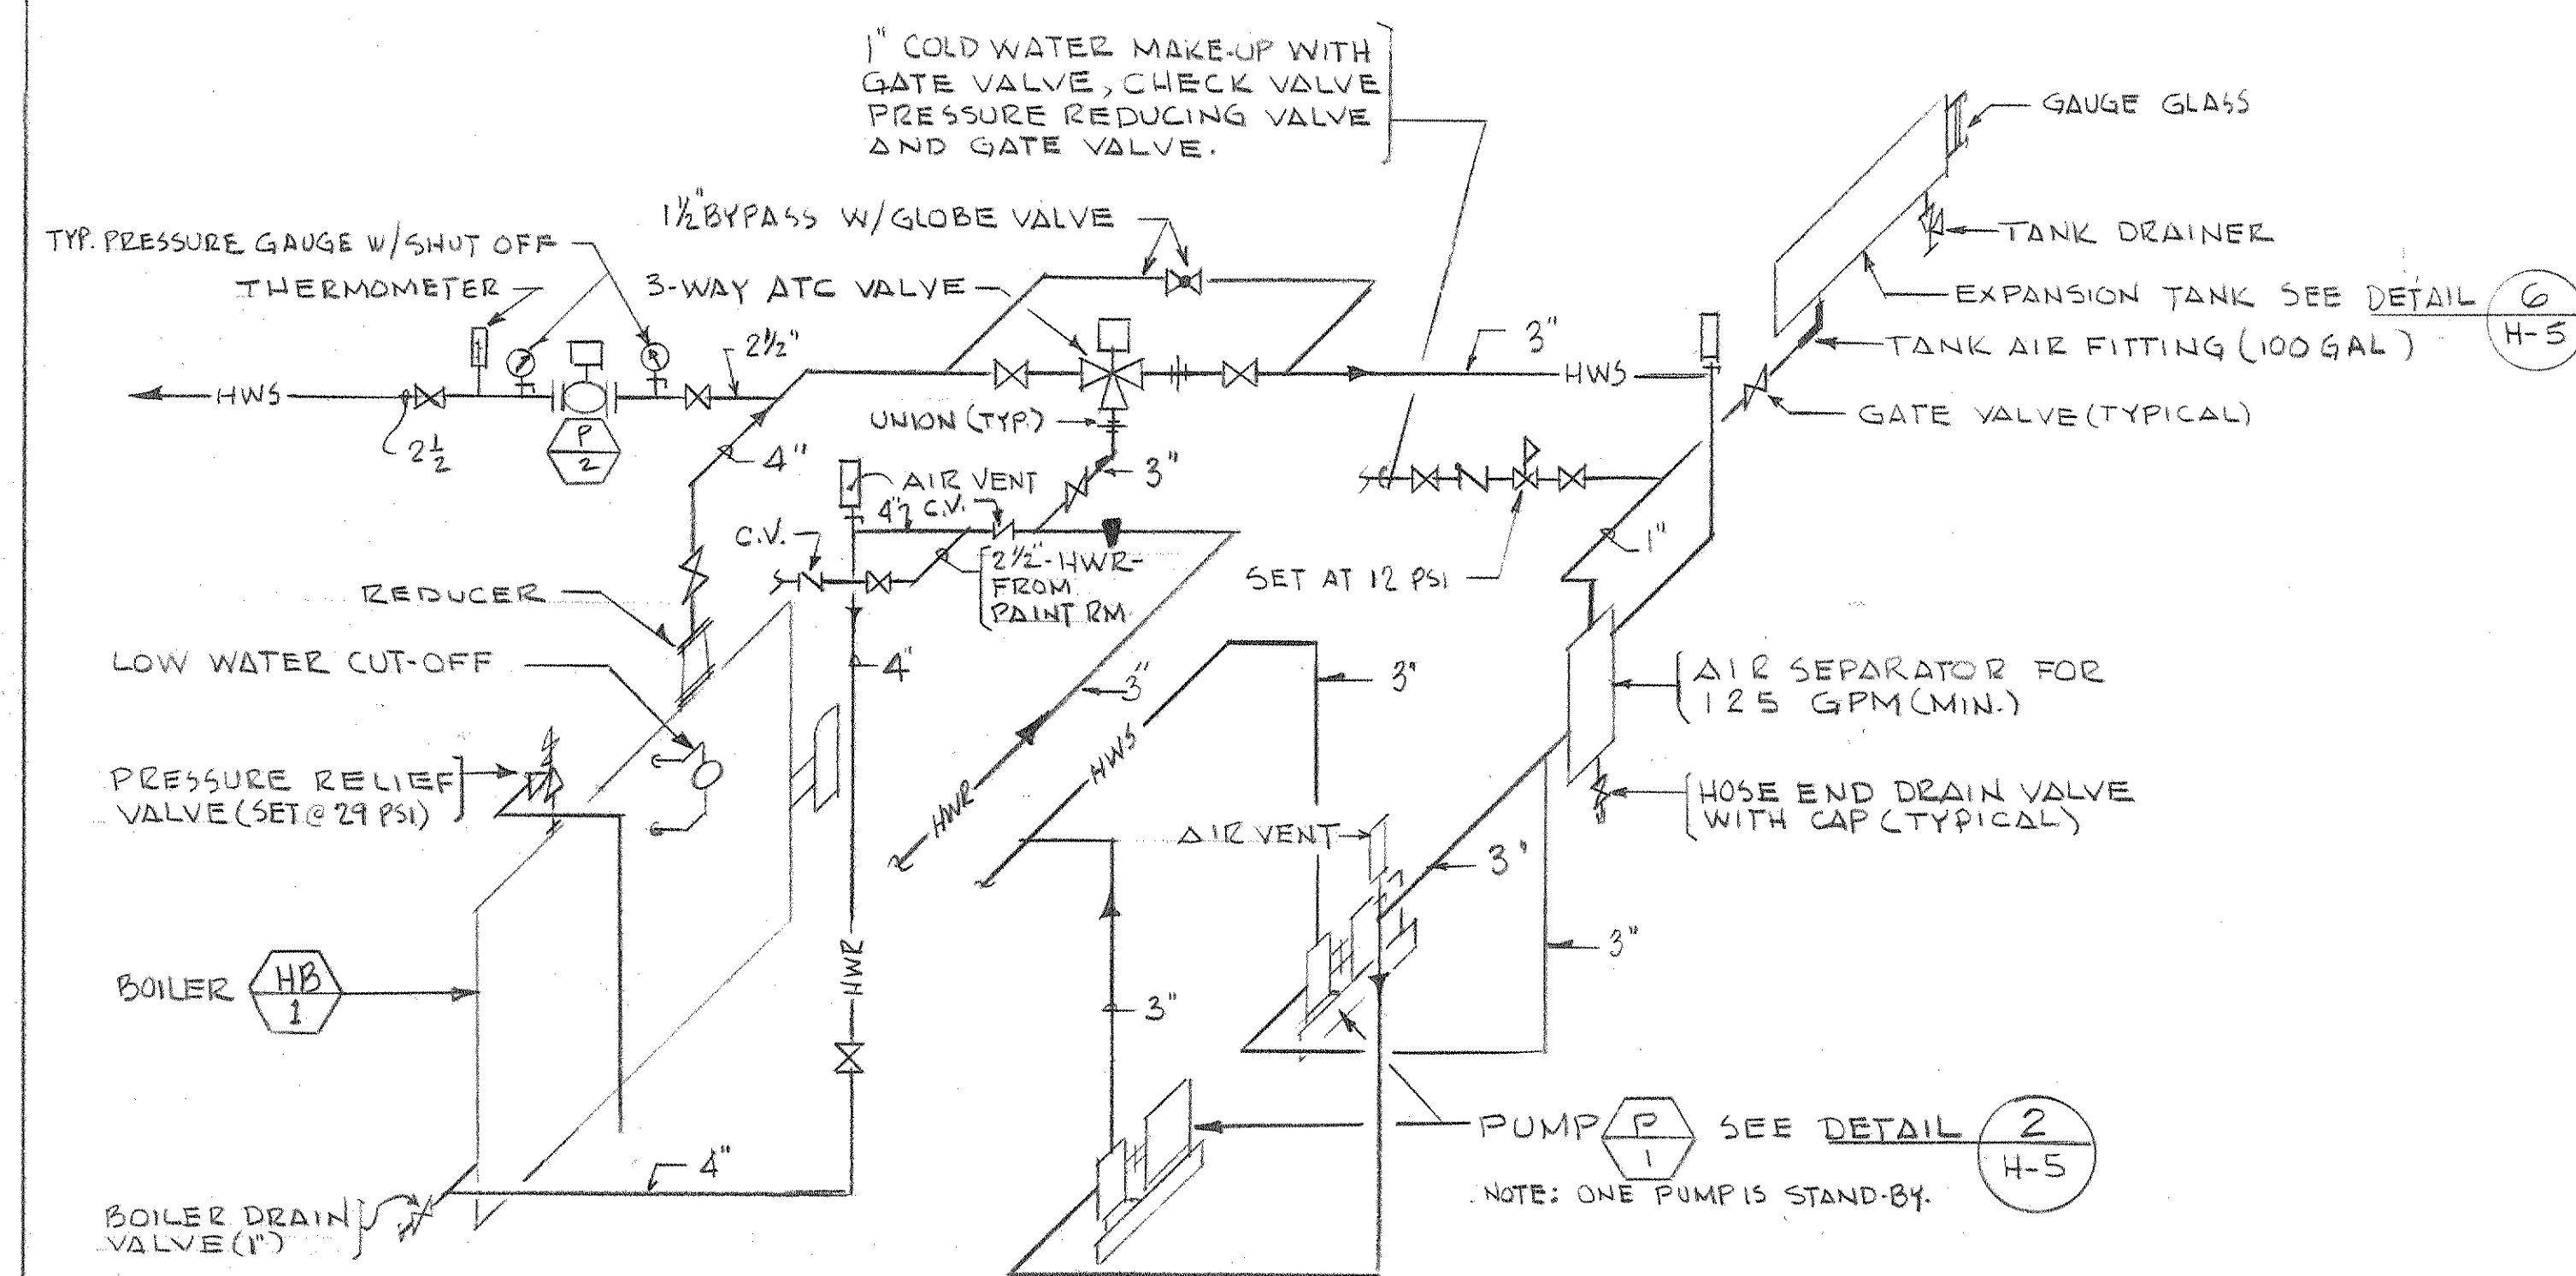 1" COLD WATER MAKE-UP WITH
GATE VALVE, CHECK VALVE
PRESSURE REDUCING VALVE
AND GATE VALVE.
GAUGE GLASS
TANK DRAINER
EXPANSION TANK SEE DETAIL
6
H-5
TANK AIR FITTING (100 GAL)
GATE VALVE (TYPICAL)
1½" BYPASS W/GLOBE VALVE
TYP. PRESSURE GAUGE W/SHUT OFF
THERMOMETER
3-WAY ATC VALVE
2½"
3"
HWS
HWS
2½
P
2
4"
UNION (TYP.)
3"
AIR VENT
4"
C.V.
C.V.
2½"-HWR-
FROM
PAINT RM.
SET AT 12 PSI
1"
REDUCER
LOW WATER CUT-OFF
4"
3"
3"
AIR SEPARATOR FOR
125 GPM (MIN.)
HWS
HWR
PRESSURE RELIEF
VALVE (SET @ 29 PSI)
HOSE END DRAIN VALVE
WITH CAP (TYPICAL)
AIR VENT
3"
3"
BOILER
HB
1
HWR
3"
PUMP
P
1
SEE DETAIL
2
H-5
NOTE: ONE PUMP IS STAND-BY.
4"
BOILER DRAIN
VALVE (1")